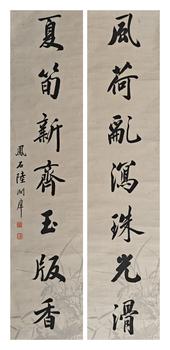 風荷亂瀉珠光滑
夏筍新齊玉版香
鳳石陸潤庠